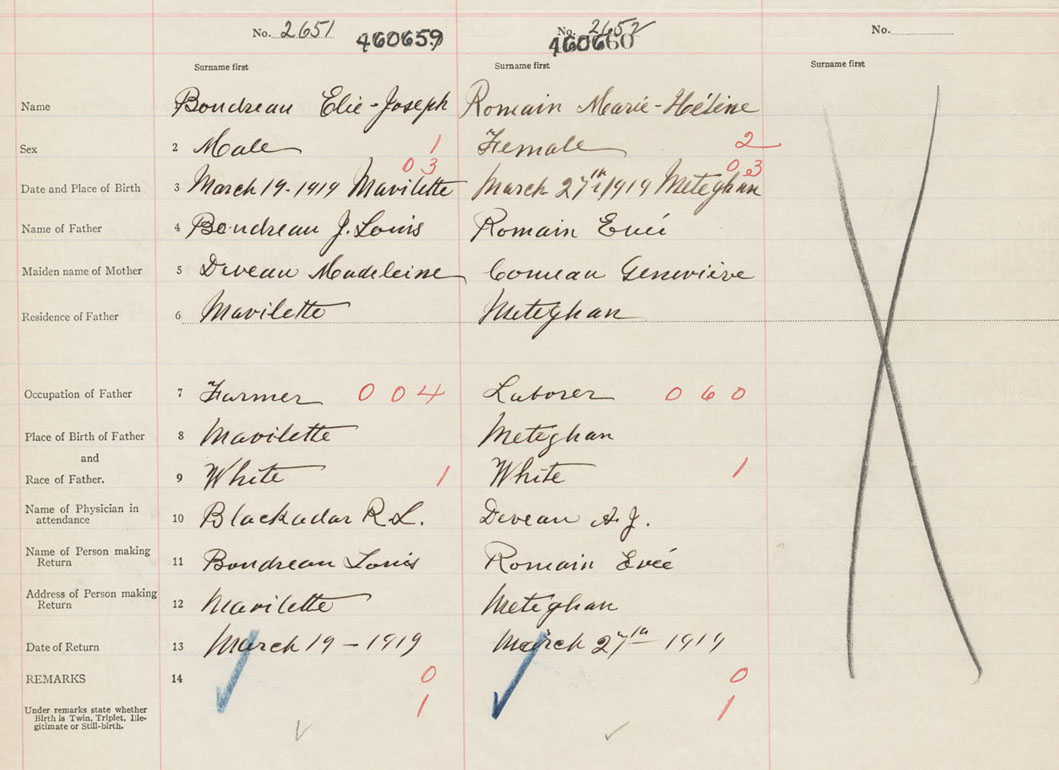 No. 2651 460659 No. 2652 460660 No.
Surname first Surname first Surname first
Name Boudreau Elie-Joseph Romain Marie-Hélène
Sex 2 Male 1 Female 2
03 03
Date and Place of Birth 3 March 19-1919 Mavilette March 27th 1919 Meteghan
Name of Father 4 Boudreau J. Louis Romain Evée
Maiden name of Mother 5 Deveau Madeleine Comeau Geneviève
Residence of Father 6 Mavilette Meteghan
Occupation of Father 7 Farmer 004 Laborer 060
Place of Birth of Father 8 Mavilette Meteghan
and
Race of Father. 9 White 1 White 1
Name of Physician in
attendance 10 Blackadar R.L. Deveau A.J.
Name of Person making
Return 11 Boudreau Louis Romain Evée
Address of Person making
Return 12 Mavilette Meteghan
Date of Return 13 March 19-1919 March 27th 1919
REMARKS 14 0 0
Under remarks state whether 1 1
Birth is Twin, Triplet, Ille-
gitimate or Still-birth.